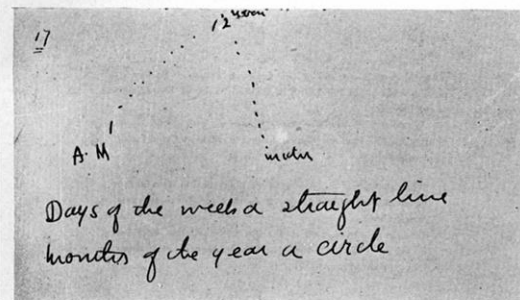 17
12 noon
1
A.M
Days of the week a straight line
months of the year a circle